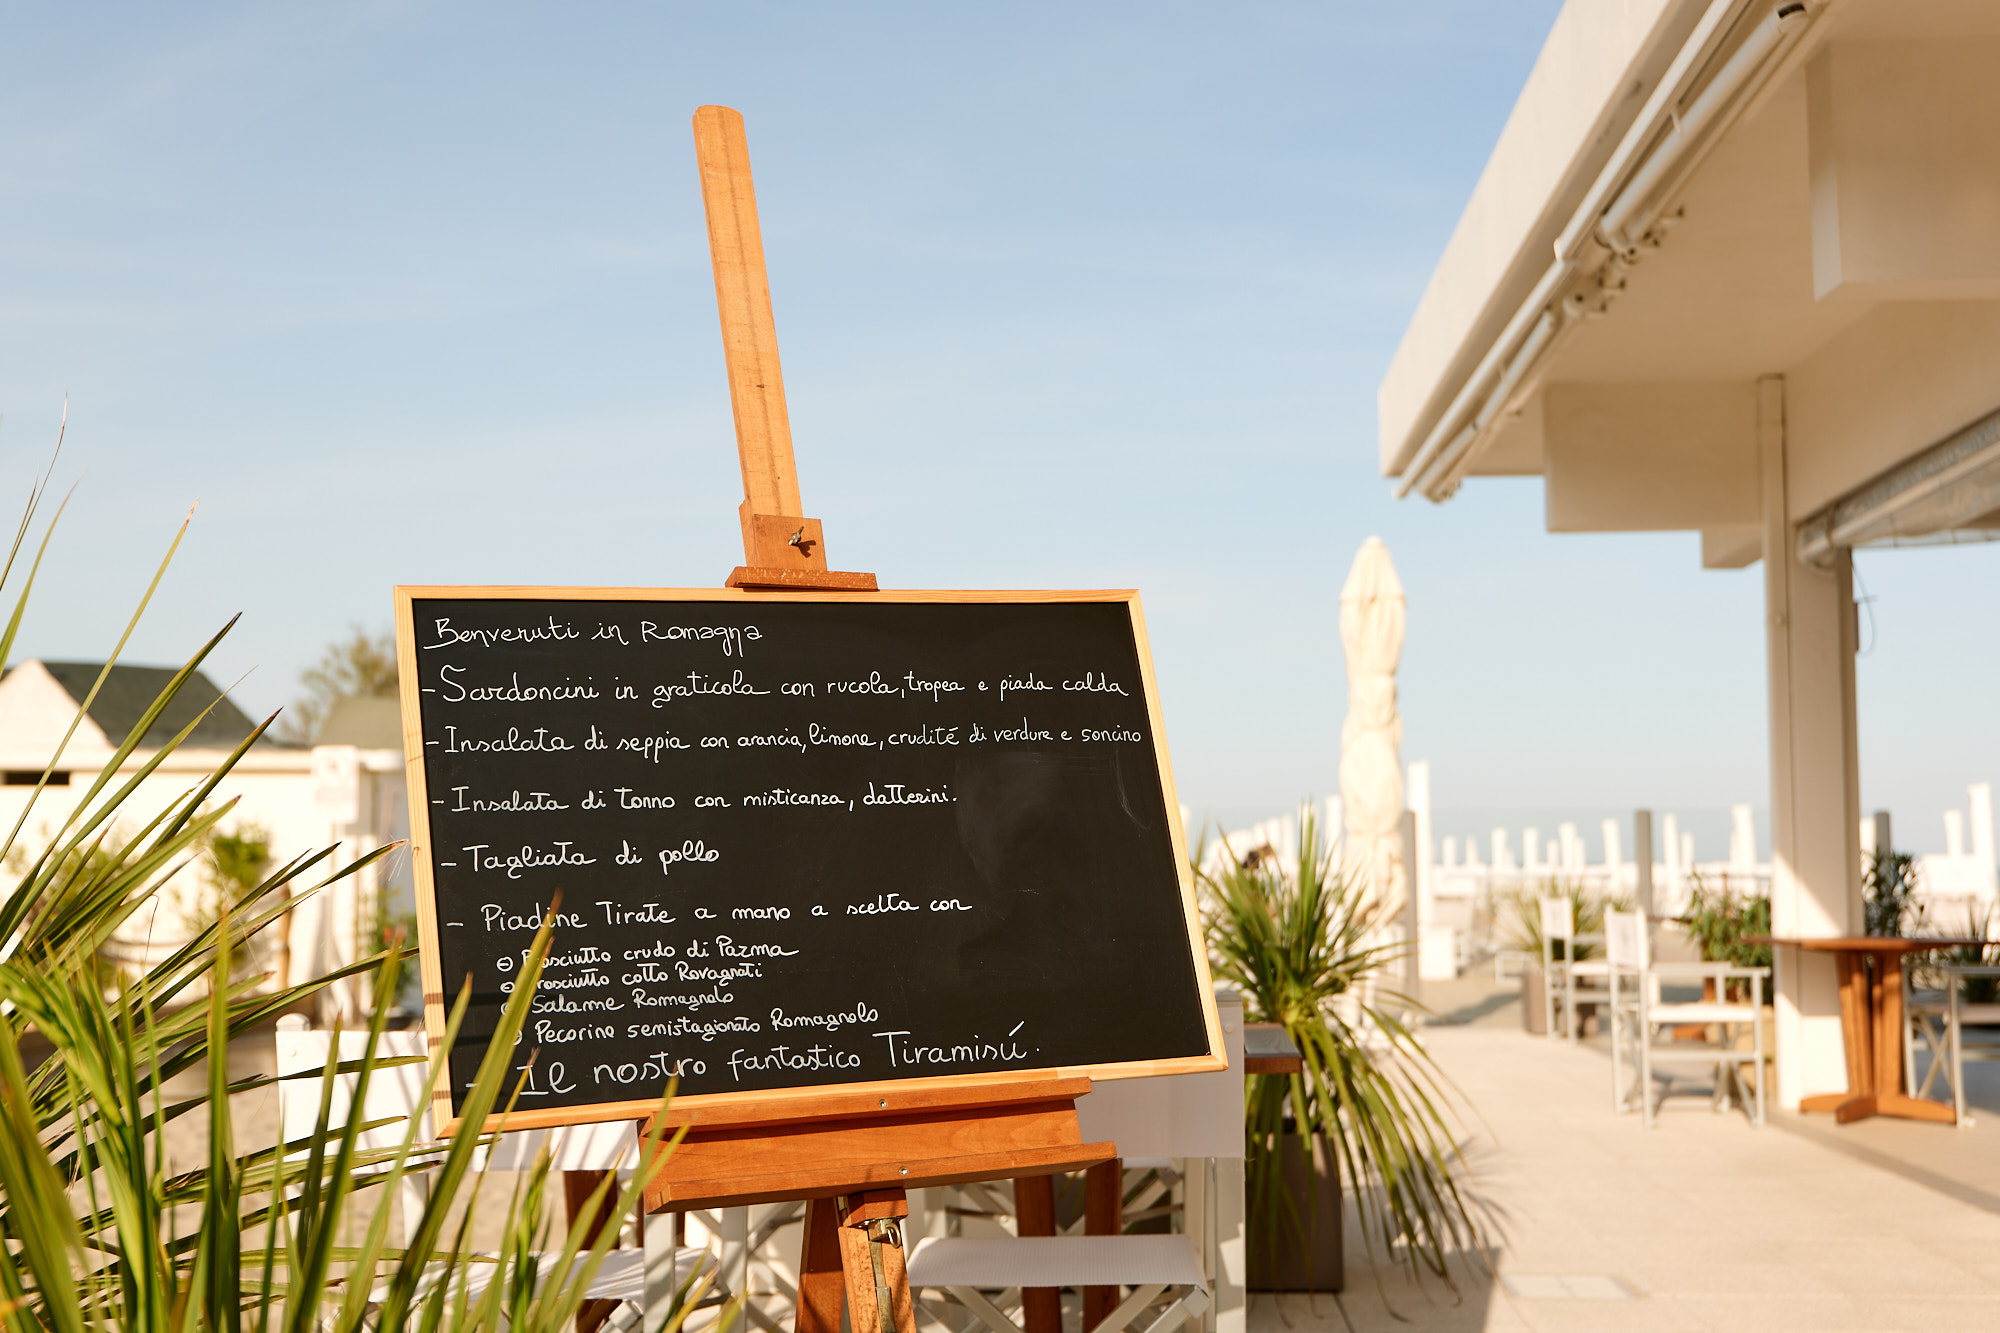 Benvenuti in Romagna
- Sardoncini in graticola con rucola, tropea e piada calda
- Insalata di seppia con arancia, limone, crudité di verdure e soncino
- Insalata di tonno con misticanza, datterini.
- Tagliata di pollo
- Piadine Tirate a mano a scelta con
Prosciutto crudo di Parma
Prosciutto cotto Rovagnati
Salame Romagnolo
Pecorino semistagionato Romagnolo
- Il nostro fantastico Tiramisú.